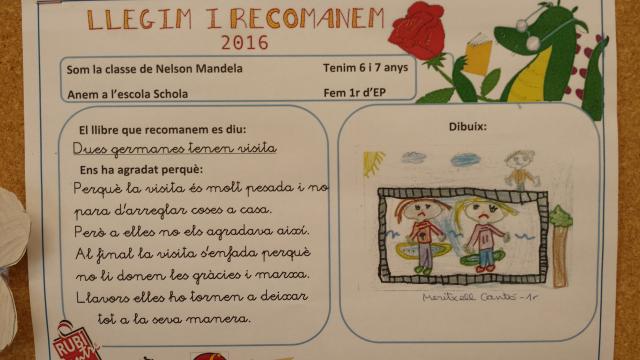 LLEGIM I RECOMANEM
2016
Som la classe de Nelson Mandela
Tenim 6 i 7 anys
Anem a l'escola Schola
Fem 1r d'EP
El llibre que recomanem es diu:
Dues germanes tenen visita
Ens ha agradat perquè:
Perquè la visita és molt pesada i no
para d'arreglar coses a casa.
Però a elles no els agradava així.
Al final la visita s'enfada perquè
no li donen les gràcies i marxa.
Llavors elles ho tornen a deixar
tot a la seva manera.
Dibuix:
Meritxell Cantó - 1r
RUBÍ